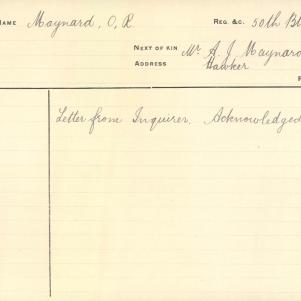 NAME Maynard, O. R. REG. &C. 50th B
NEXT OF KIN Mr. A. J. Maynard
ADDRESS Hawker
Letter from Inquirer. Acknowledged